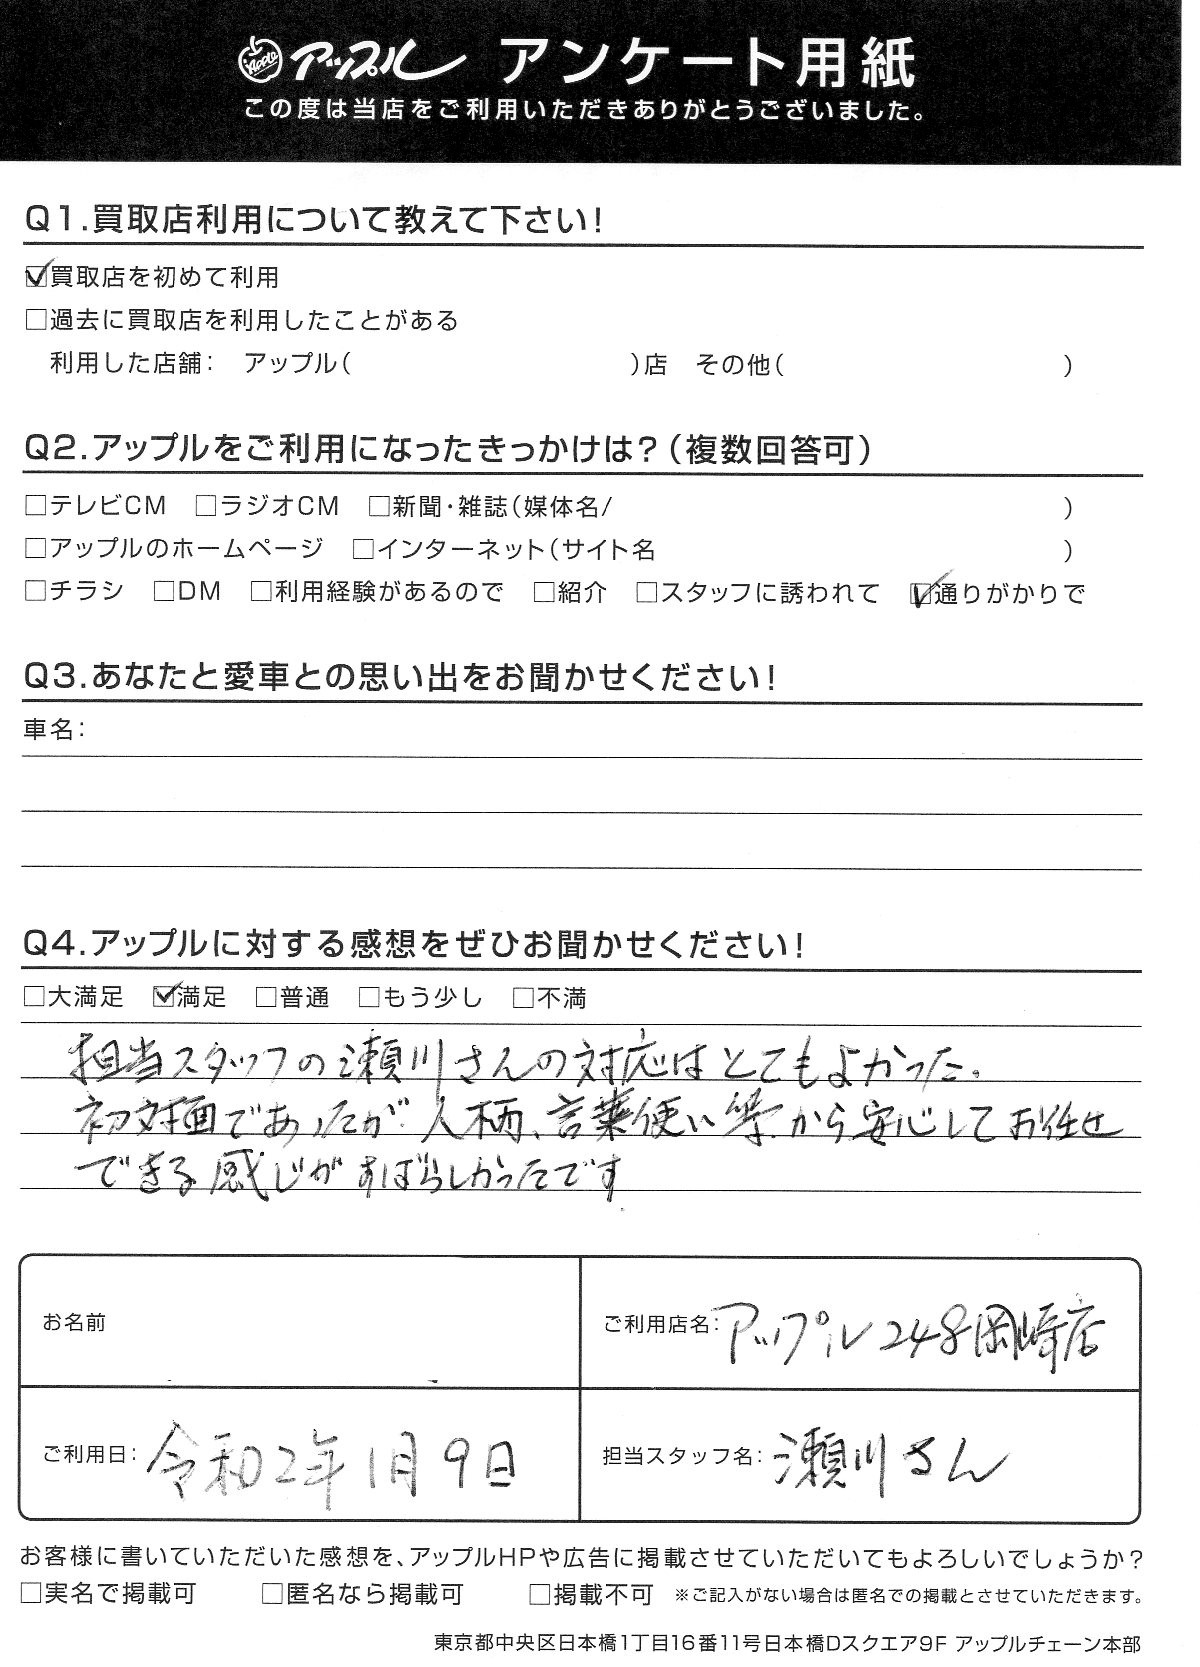 Apple アップル アンケート用紙
この度は当店をご利用いただきありがとうございました。
Q1.買取店利用について教えて下さい！
☑買取店を初めて利用
□過去に買取店を利用したことがある
利用した店舗： アップル（ ）店 その他（ ）
Q2.アップルをご利用になったきっかけは？（複数回答可）
□テレビCM □ラジオCM □新聞・雑誌（媒体名/ ）
□アップルのホームページ □インターネット（サイト名 ）
□チラシ □DM □利用経験があるので □紹介 □スタッフに誘われて ☑通りがかりで
Q3.あなたと愛車との思い出をお聞かせください！
車名：
Q4.アップルに対する感想をぜひお聞かせください！
□大満足 ☑満足 □普通 □もう少し □不満
担当スタッフの瀬川さんの対応はとてもよかった。
初対面であったが、人柄、言葉使い等から安心してお任せ
できる感じがすばらしかったです
お名前
ご利用店名：アップル248岡崎店
ご利用日：令和2年1月9日
担当スタッフ名：瀬川さん
お客様に書いていただいた感想を、アップルHPや広告に掲載させていただいてもよろしいでしょうか？
□実名で掲載可 □匿名なら掲載可 □掲載不可 ※ご記入がない場合は匿名での掲載とさせていただきます。
東京都中央区日本橋1丁目16番11号日本橋Dスクエア9F アップルチェーン本部